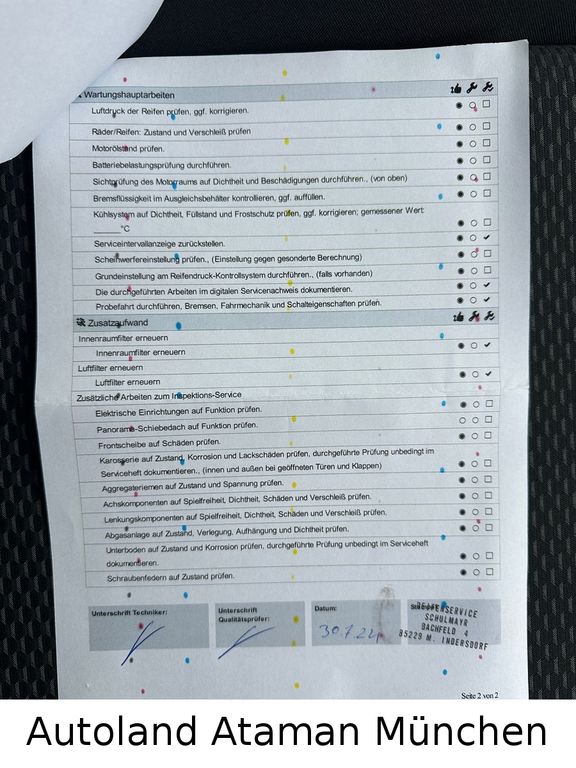 Wartungshauptarbeiten
Luftdruck der Reifen prüfen, ggf. korrigieren.
Räder/Reifen: Zustand und Verschleiß prüfen
Motorölstand prüfen.
Batteriebelastungsprüfung durchführen.
Sichtprüfung des Motorraums auf Dichtheit und Beschädigungen durchführen., (von oben)
Bremsflüssigkeit im Ausgleichsbehälter kontrollieren, ggf. auffüllen.
Kühlsystem auf Dichtheit, Füllstand und Frostschutz prüfen, ggf. korrigieren; gemessener Wert:
______°C
Serviceintervallanzeige zurückstellen.
Scheinwerfereinstellung prüfen., (Einstellung gegen gesonderte Berechnung)
Grundeinstellung am Reifendruck-Kontrollsystem durchführen., (falls vorhanden)
Die durchgeführten Arbeiten im digitalen Servicenachweis dokumentieren.
Probefahrt durchführen, Bremsen, Fahrmechanik und Schalteigenschaften prüfen.
Zusatzaufwand
Innenraumfilter erneuern
Innenraumfilter erneuern
Luftfilter erneuern
Luftfilter erneuern
Zusätzliche Arbeiten zum Inspektions-Service
Elektrische Einrichtungen auf Funktion prüfen.
Panorama-Schiebedach auf Funktion prüfen.
Frontscheibe auf Schäden prüfen.
Karosserie auf Zustand, Korrosion und Lackschäden prüfen, durchgeführte Prüfung unbedingt im
Serviceheft dokumentieren., (innen und außen bei geöffneten Türen und Klappen)
Aggregateriemen auf Zustand und Spannung prüfen.
Achskomponenten auf Spielfreiheit, Dichtheit, Schäden und Verschleiß prüfen.
Lenkungskomponenten auf Spielfreiheit, Dichtheit, Schäden und Verschleiß prüfen.
Abgasanlage auf Zustand, Verlegung, Aufhängung und Dichtheit prüfen.
Unterboden auf Zustand und Korrosion prüfen, durchgeführte Prüfung unbedingt im Serviceheft
dokumentieren.
Schraubenfedern auf Zustand prüfen.
Unterschrift Techniker:
Unterschrift
Qualitätsprüfer:
Datum:
30.7.24
REIFENSERVICE
SCHULMAYR
BACHFELD 4
85229 M. INDERSDORF
Seite 2 von 2
Autoland Ataman München